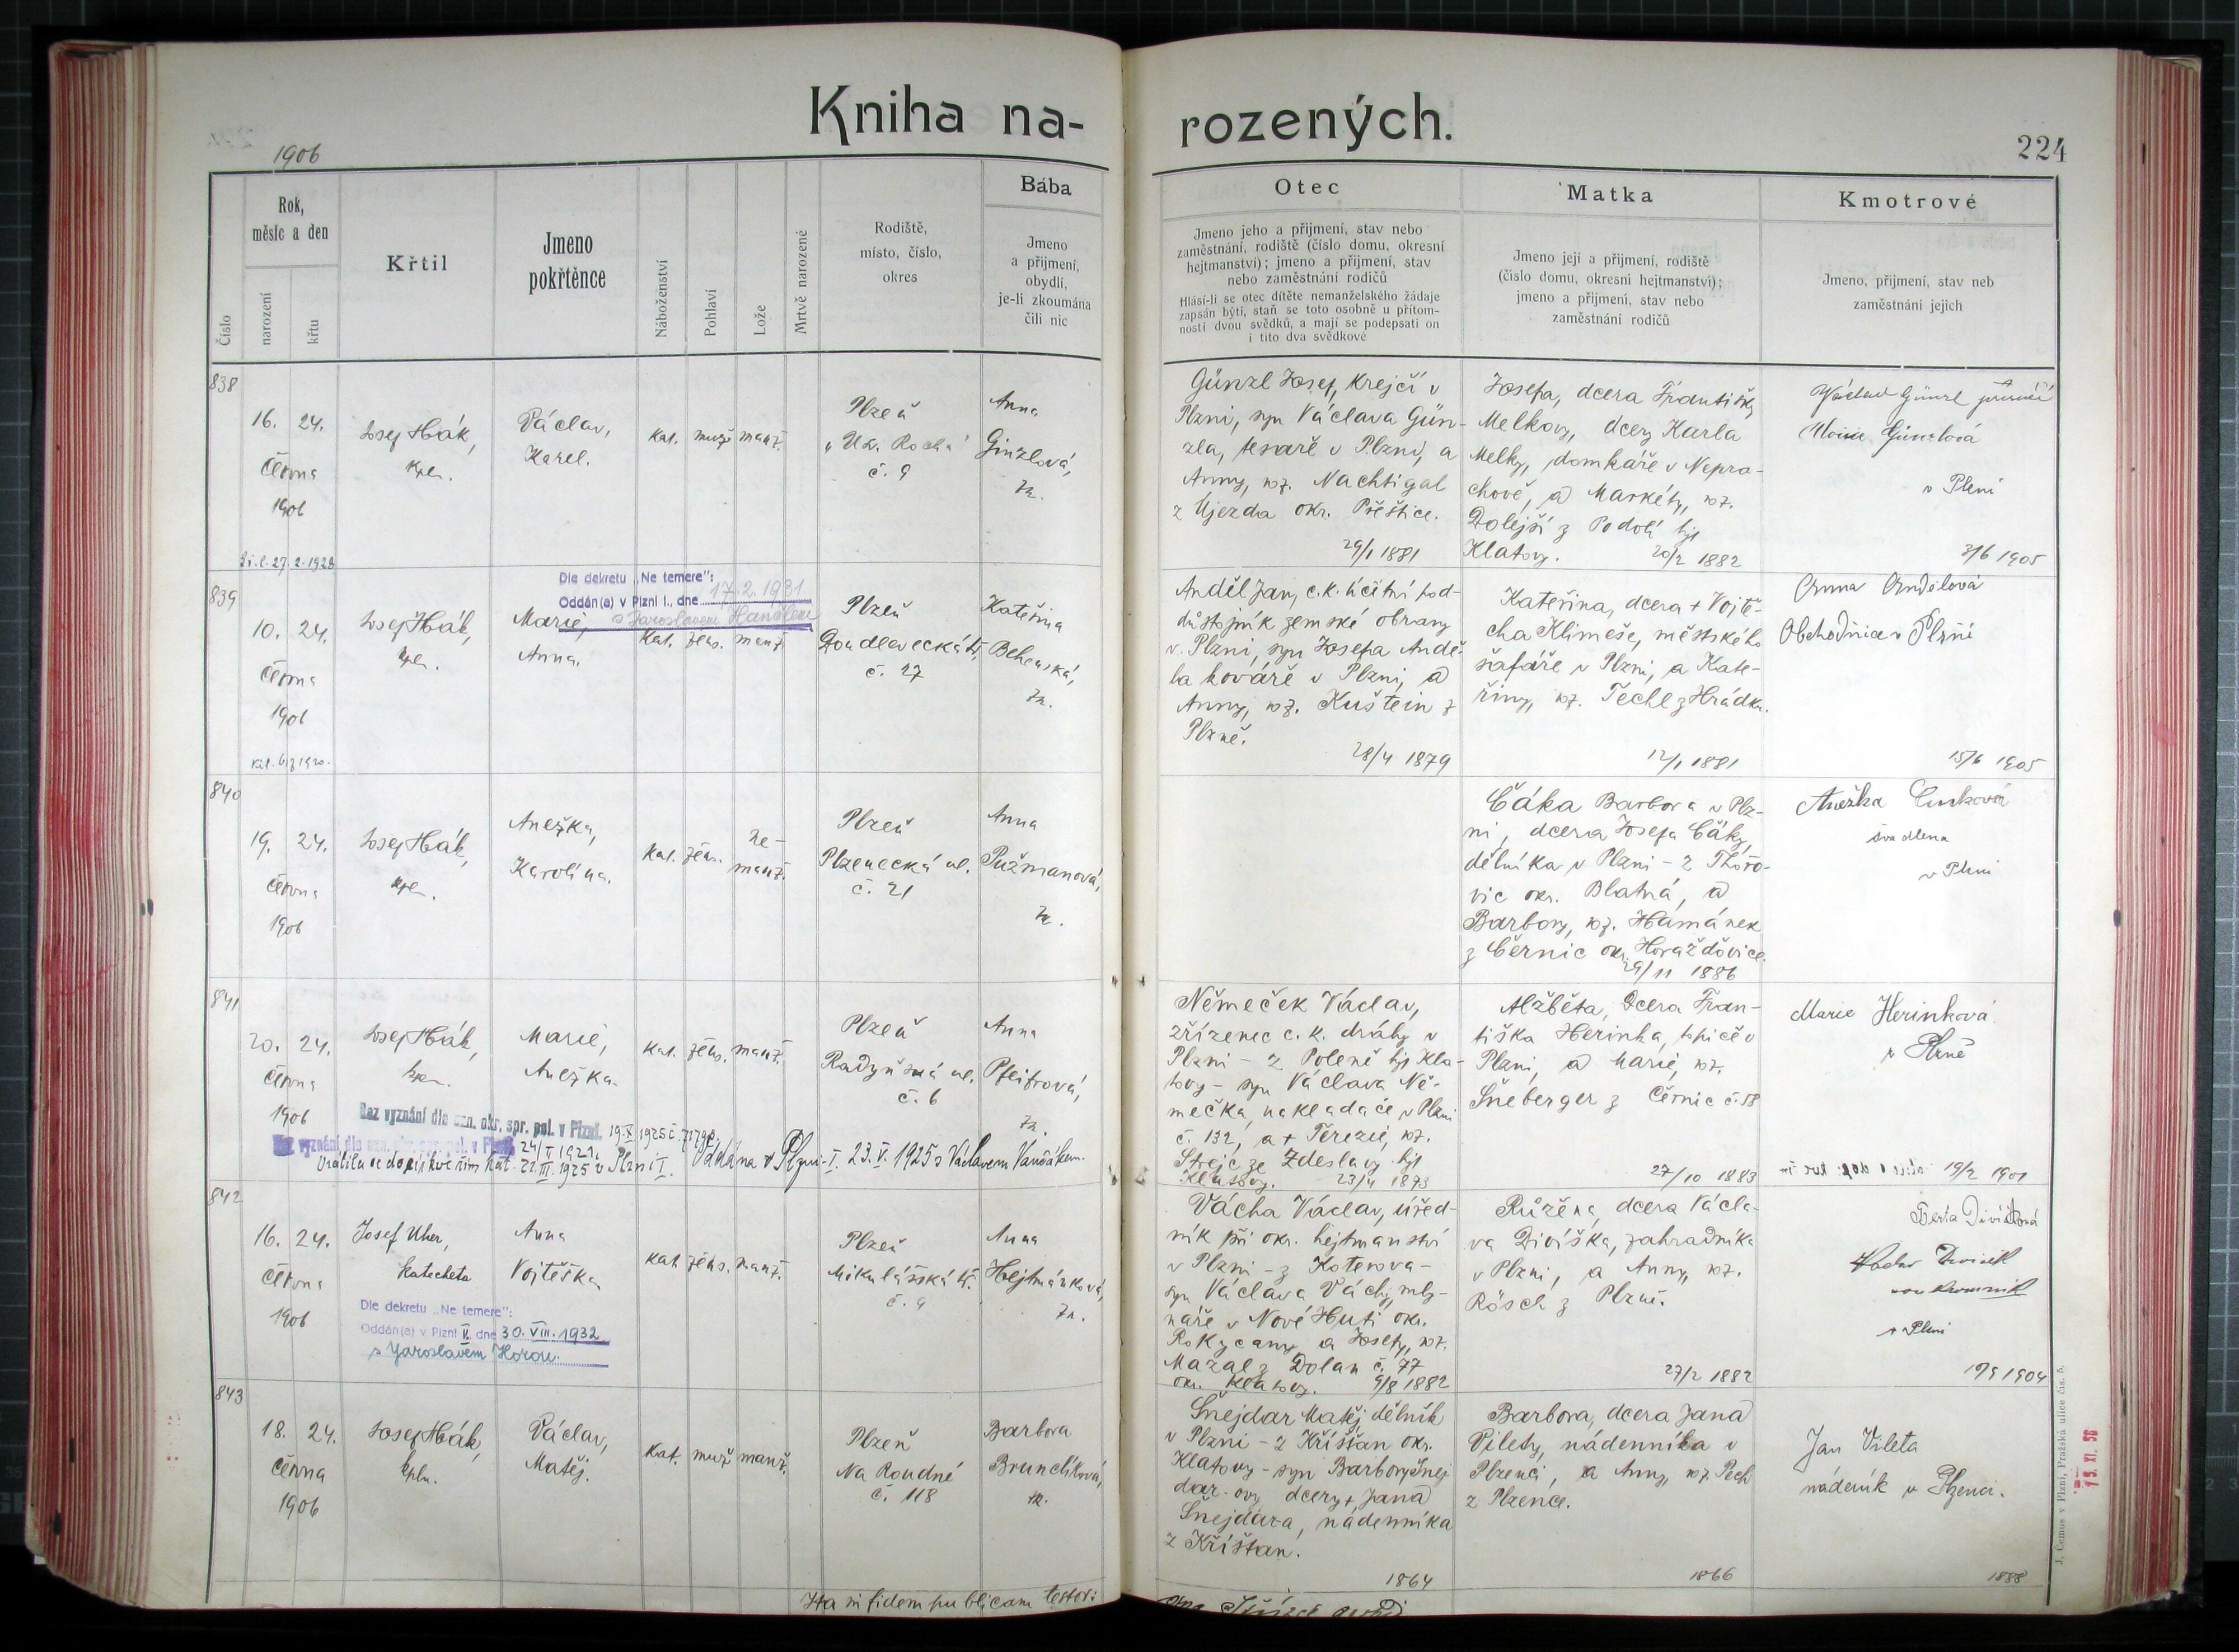 Kniha na-
rozených.
1906
224
Číslo
Rok,
měsíc a den
narození
křtu
Křtil
Jmeno
pokřtěnce
Náboženství
Pohlaví
Lože
Mrtvě narozené
Rodiště,
místo, číslo,
okres
Bába
Jmeno
a přijmení,
obydlí,
je-li zkoumána
čili nic
Otec
Jmeno jeho a přijmení, stav nebo
zaměstnání, rodiště (číslo domu, okresní
hejtmanství); jmeno a přijmení, stav
nebo zaměstnání rodičů
Hlásí-li se otec dítěte nemanželského žádaje
zapsán býti, staň se toto osobně u přítom-
nosti dvou svědků, a mají se podepsati on
i tito dva svědkové
Matka
Jmeno její a přijmení, rodiště
(číslo domu, okresní hejtmanství);
jmeno a přijmení, stav nebo
zaměstnání rodičů
Kmotrové
Jmeno, přijmení, stav neb
zaměstnání jejich
838
16. 24.
června
1906
27.2.1928
Josef Hák,
kpl.
Václav,
Karel.
kat. muž. manž.
Plzeň
„U sv. Rocha"
č. 9
Anna
Ginzlová,
zk.
Günzl Josef, krejčí v
Plzni, syn Václava Gün-
zla, tesaře v Plzni, a
Anny, roz. Nachtigal
z Újezda okr. Přeštice.
29/1 1881
Josefa, dcera Františky
Melkovy, dcery Karla
Melky, domkáře v Nepra-
chově, a Markéty, roz.
Dolejší z Podolí hjt
Klatovy. 20/2 1882
Václav Günzl
Günzlová
v Plzni
3/6 1905
839
10. 24.
června
1906
Josef Hák,
kpl.
Dle dekretu „Ne temere":
Oddán(a) v Plzni I., dne 17.2.1931
s Jaroslavem
Marie,
Anna.
kat. žens. manž.
Plzeň
Doudlevecká tř.
č. 27
Kateřina
Behenská,
zk.
Anděl Jan, c.k. účetní pod-
důstojník zemské obrany
v Plzni, syn Josefa Andě-
la kováře v Plzni, a
Anny, roz. Kuštein z
Plzně.
28/4 1879
Kateřina, dcera + Vojtě-
cha Klimeše, městského
šafáře v Plzni, a Kate-
řiny, roz. Techl z Hrádku.
12/1 1881
Anna Andělová
Obchodnice v Plzni
15/6 1905
840
19. 24.
června
1906
Josef Hák,
kpl.
Anežka,
Karolina.
kat. žens. ne-
manž.
Plzeň
Plzenecká ul.
č. 21
Anna
Pužmanová,
zk.
Čáka Barbora v Plz-
ni, dcera Josefa Čáky,
dělníka v Plzni - z Thořo-
vic okr. Blatná, a
Barbory, roz. Hamánek
z Černic okr. Horažďovice.
29/11 1886
Anežka
švadlena
v Plzni
841
20. 24.
června
1906
Josef Hák,
kpl.
Marie,
Anežka.
kat. žens. manž.
Plzeň
Radyňská ul.
č. 6
Anna
Pfeifrová,
zk.
Bez vyznání dle ozn. okr. spr. pol. v Plzni. 19.X.1925
Bez vyznání dle ozn. okr. spr. pol. v Plzni 24/I 1921.
Vrátila se do círk. řím. kat. 22.III.1925 v Plzni I. Oddána v Plzni-I. 23.V.1925 s Václavem Vaňzákem.
Němeček Václav,
zřízenec c.k. dráhy v
Plzni - z Poleně hjt Kla-
tovy - syn Václava Ně-
mečka, nakladače v Plzni
č. 132, a + Terezie, roz.
Strejc ze Zdeslavy hjt
Klatovy. 23/4 1873
Alžběta, dcera Fran-
tiška Herinka, topiče v
Plzni, a Marie, roz.
Šneberger z Černic č. 58
27/10 1883
Marie Herinková
v Plzně
19/2 1901
842
16. 24.
června
1906
Josef Uher,
katecheta
Anna
Vojtěška
kat. žens. manž.
Plzeň
Mikulášská tř.
č. 9
Anna
Hejtmánková,
zk.
Dle dekretu „Ne temere":
Oddán(a) v Plzni II. dne 30.VIII.1932
s Jaroslavem Horou.
Vácha Václav, úřed-
ník při okr. hejtmanství
v Plzni - z Koterova -
syn Václava Váchy, mly-
náře v Nové Huti okr.
Rokycany, a Josefy, roz.
Mazal z Dolan č. 77
okr. Klatovy. 9/8 1882
Růžena, dcera Václa-
va Diviška, zahradníka
v Plzni, a Anny, roz.
Rösch z Plzně.
27/2 1882
Berta Divišková
v Plzni
1904
843
18. 24.
června
1906
Josef Hák,
kpln.
Václav,
Matěj.
kat. muž. manž.
Plzeň
Na Roudné
č. 118
Barbora
Brunclíková,
zk.
Šnejdar Matěj dělník
v Plzni - z Kříšťan okr.
Klatovy - syn Barbory Šnej
dar-ovy dcery + Jana
Šnejdara, nádenníka
z Kříšťan.
1864
Barbora, dcera Jana
Vilety, nádenníka v
Plzenci, a Anny, roz. Pech
z Plzence.
1866
Jan Vileta
nádeník v Plzenci.
1888
Ita in fidem publicam testor:
J. Cemus v Plzni, Pražská ulice čís. 5.